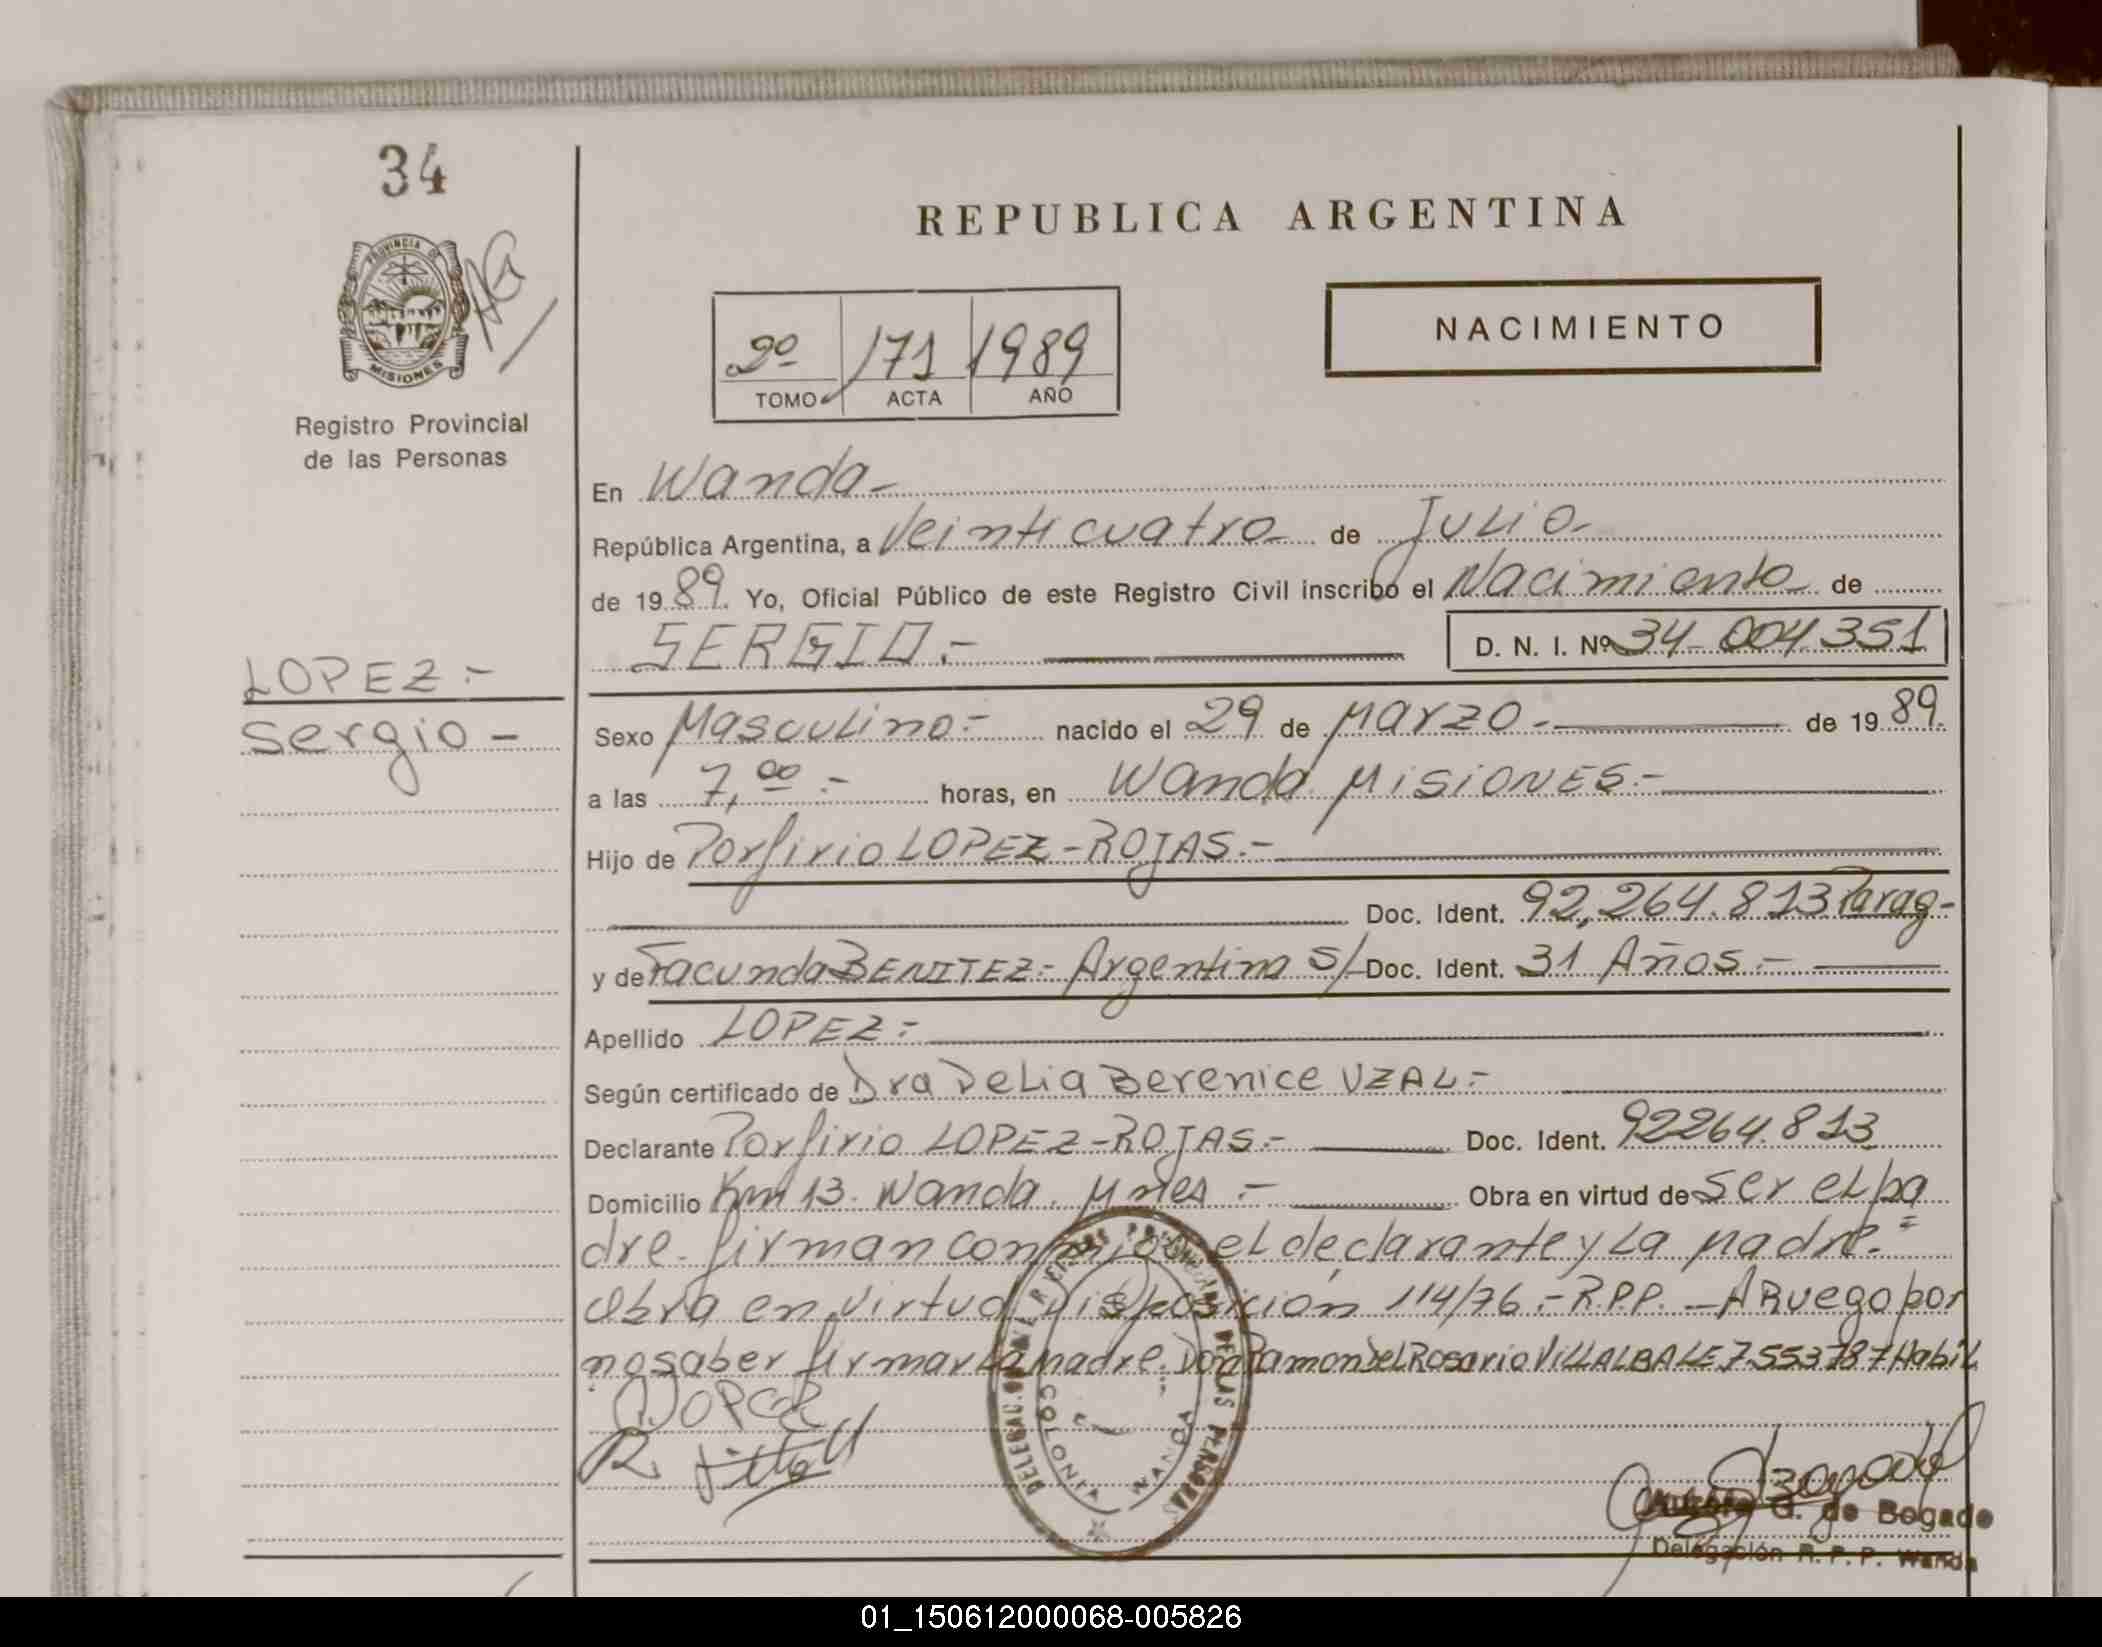 34
PROVINCIA DE
MISIONES
Registro Provincial
de las Personas
LOPEZ.-
Sergio-
REPUBLICA ARGENTINA
2º 171 1989
TOMO ACTA AÑO
NACIMIENTO
En Wanda-
República Argentina, a Veinticuatro de Julio-
de 1989. Yo, Oficial Público de este Registro Civil inscribo el Nacimiento de
SERGIO.- D. N. I. Nº 34-004.351
Sexo Masculino.- nacido el 29 de Marzo.- de 1989.
a las 7,00.- horas, en Wanda Misiones.-
Hijo de Porfirio LOPEZ-ROJAS.-
Doc. Ident. 92,264.813 Parag-
y de Facunda BENITEZ.- Argentina S/ Doc. Ident. 31 Años.-
Apellido LOPEZ.-
Según certificado de Dra Delia Berenice UZAL.-
Declarante Porfirio LOPEZ-ROJAS.- Doc. Ident. 92264.813
Domicilio Km 13. Wanda. Mnes.- Obra en virtud de ser el pa
dre. firman conmigo el declarante y la Madre.=
Obra en virtud Disposición 114/76.- R.P.P. - A Ruego por
no saber firmar la madre. Don Ramon del Rosario VILLALBA LE 7.553787 Habil
COLONIA WANDA
G. de Bogado
Delegación R. P. P. Wanda
01_150612000068-005826